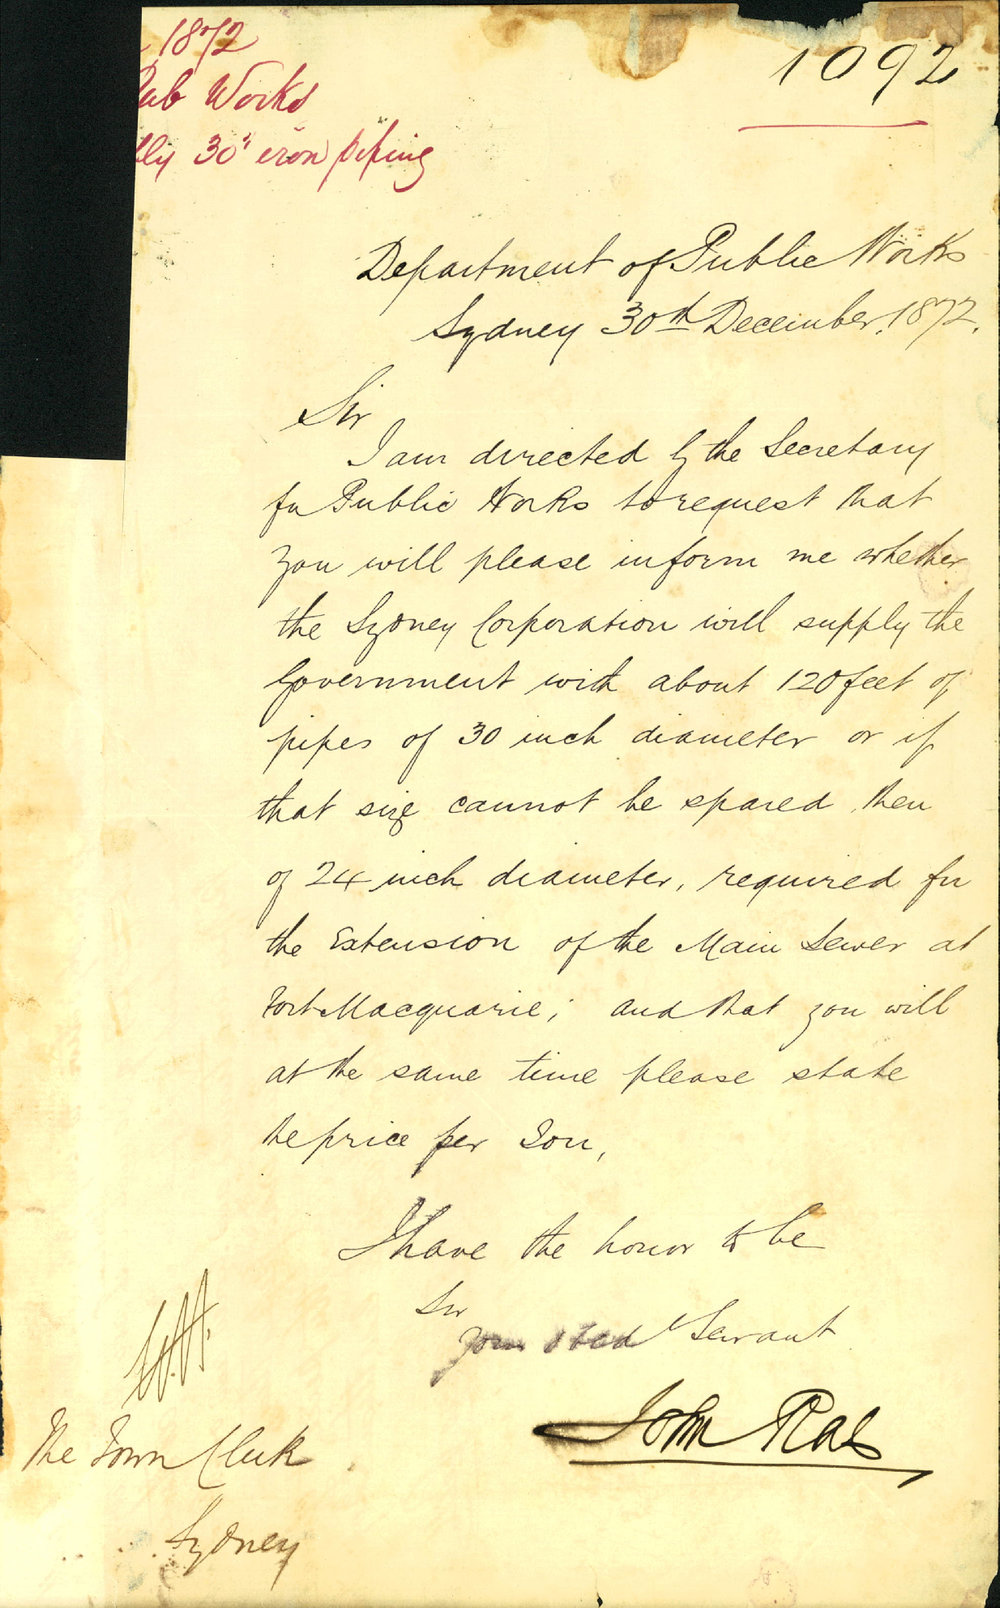 1872
Pub Works
30" iron piping
1092
Department of Public Works
Sydney 30th December. 1872.
Sir
I am directed by the Secretary
for Public Works to request that
you will please inform me whether
the Sydney Corporation will supply the
Government with about 120 feet of
pipes of 30 inch diameter or if
that size cannot be spared then
of 24 inch diameter, required for
the Extension of the Main Sewer at
Fort Macquarie; and that you will
at the same time please state
the price per Ton,
I have the honor to be
Sir
Your Obed Servant
John Rae
The Town Clerk
Sydney